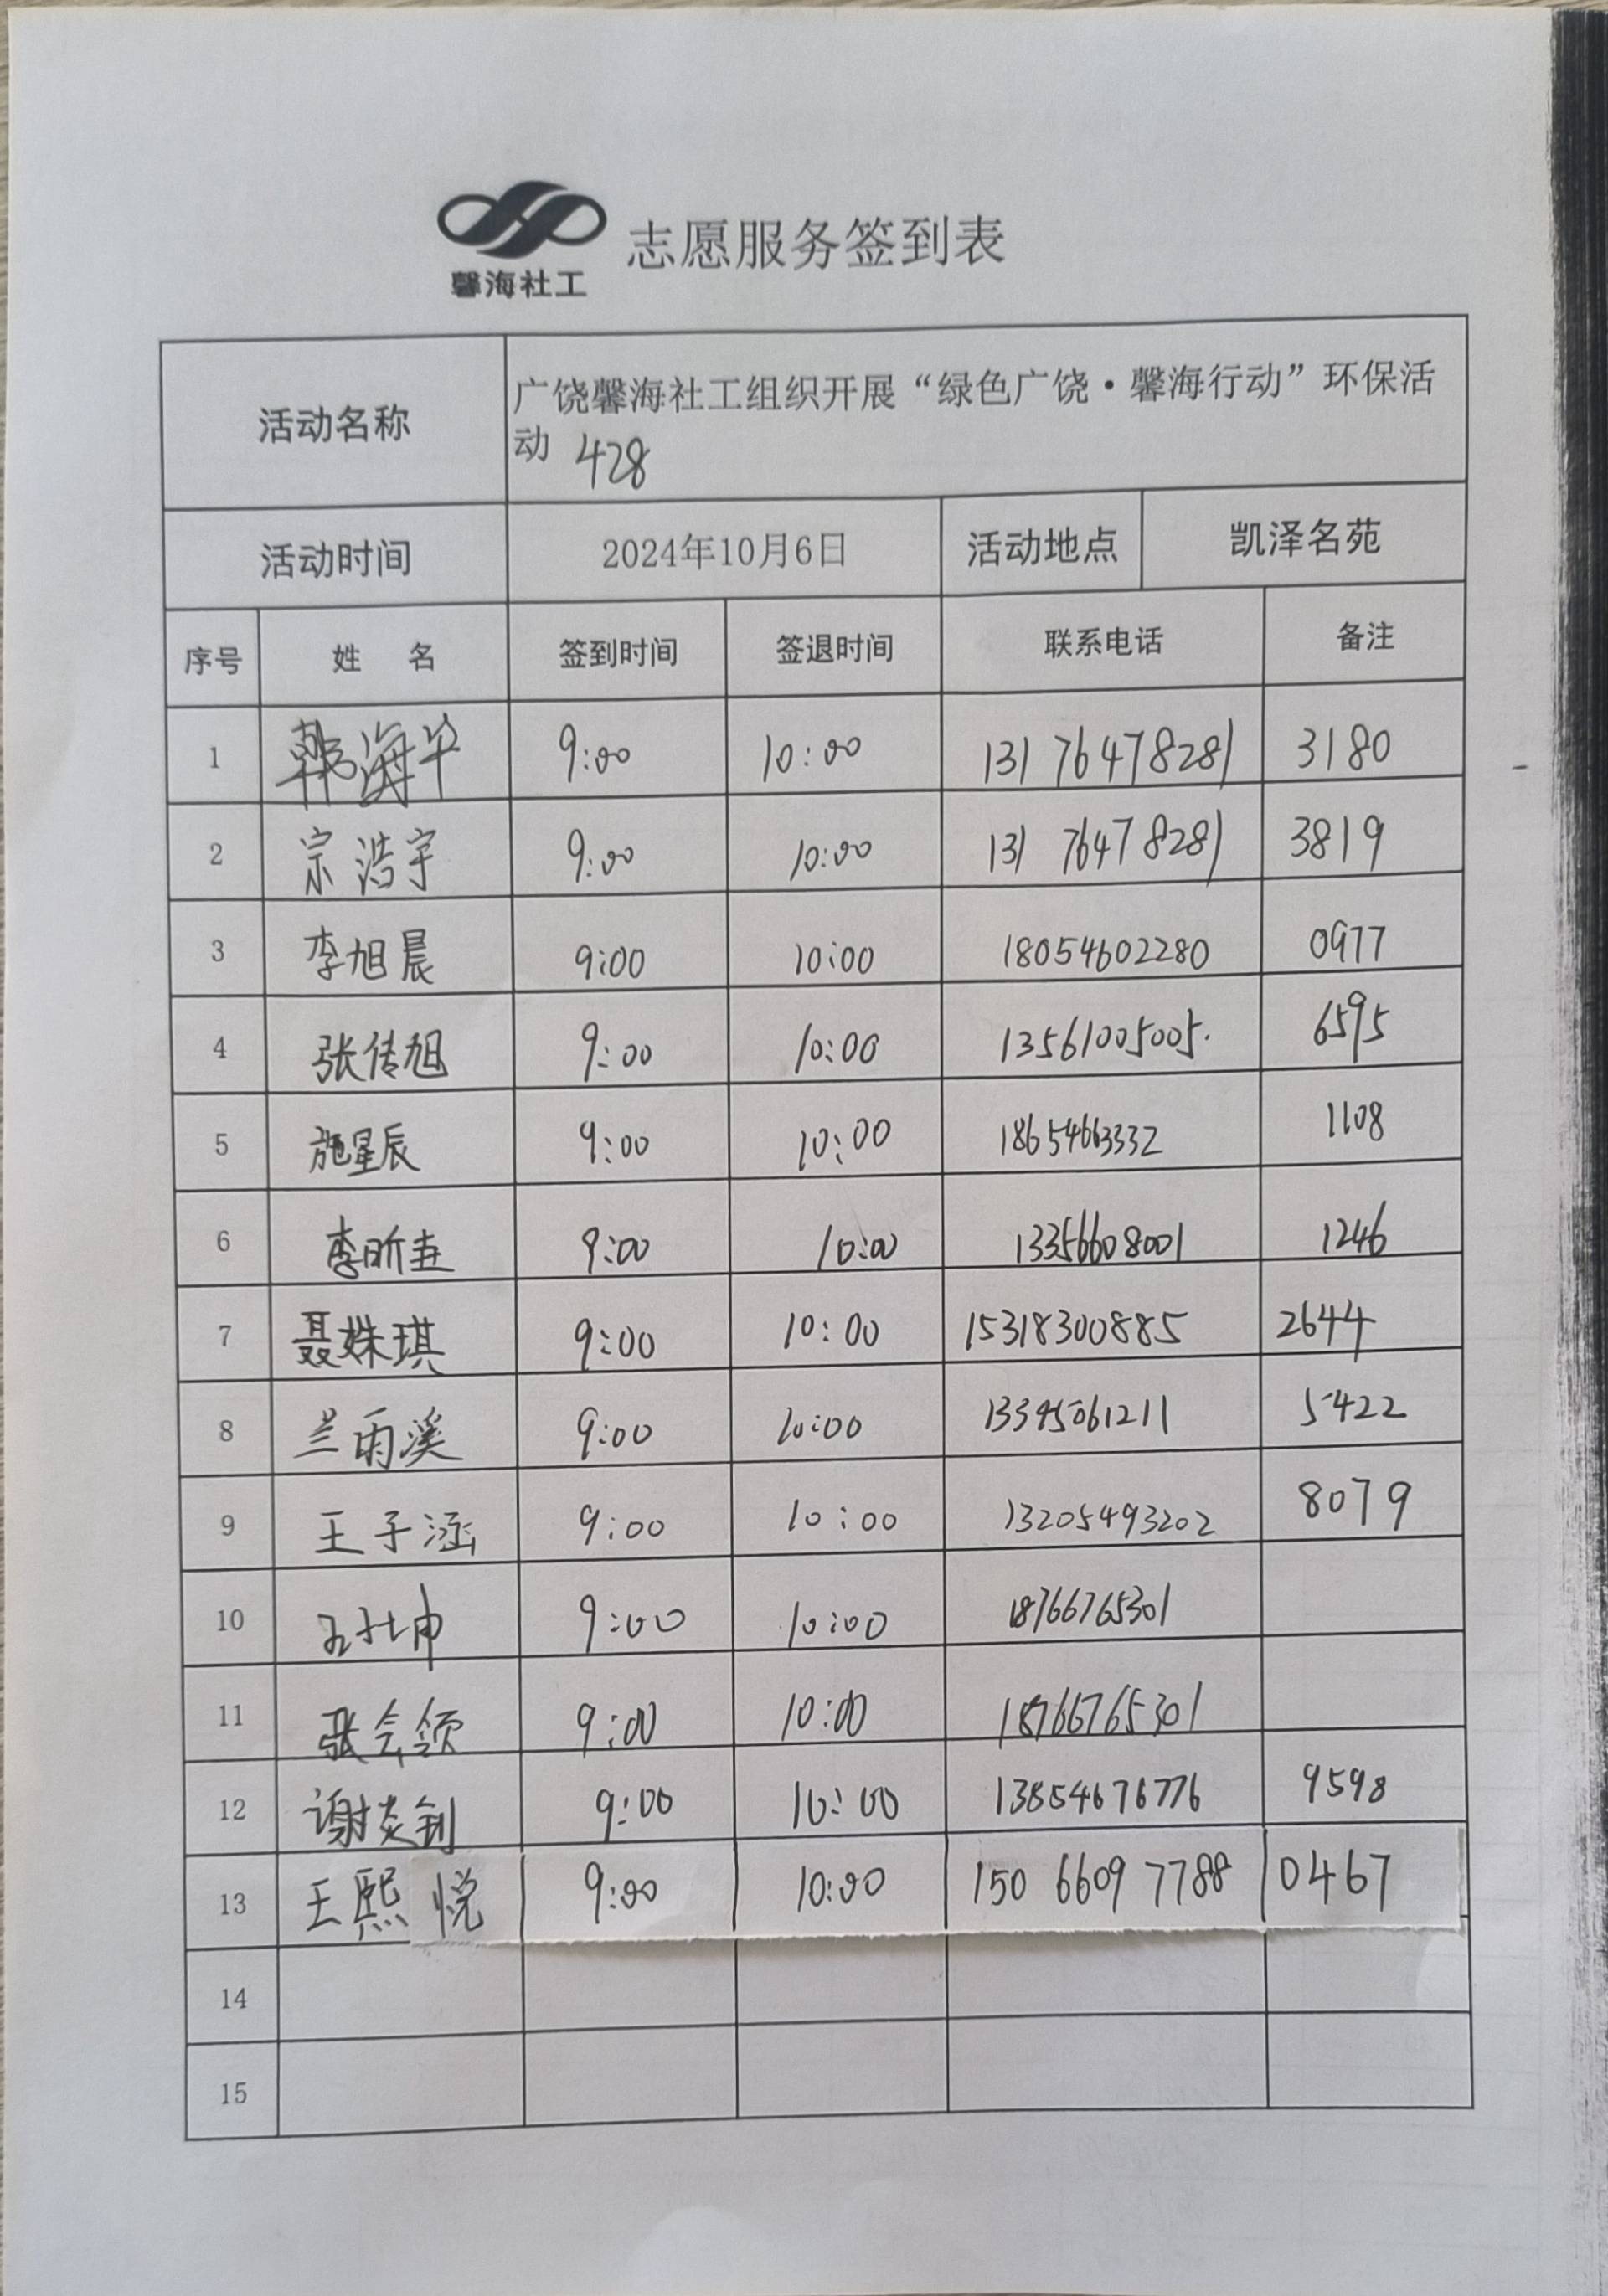 馨海社工
志愿服务签到表
活动名称 广饶馨海社工组织开展“绿色广饶·馨海行动”环保活
动 428
活动时间 2024年10月6日 活动地点 凯泽名苑
序号 姓 名 签到时间 签退时间 联系电话 备注
1 韩海华 9:00 10:00 13176478281 3180
2 宗浩宇 9:00 10:00 13176478281 3819
3 李旭晨 9:00 10:00 18054602280 0977
4 张传旭 9:00 10:00 13561005005. 6595
5 施星辰 9:00 10:00 18654663332 1108
6 李昕垚 9:00 10:00 13356608001 1246
7 聂姝琪 9:00 10:00 15318300885 2644
8 兰雨溪 9:00 10:00 13395061211 5422
9 王子涵 9:00 10:00 13205493202 8079
10 9:00 10:00 18766765301
11 张会领 9:00 10:00 18766765301
12 谢炎钊 9:00 10:00 13854676776 9598
13 王熙悦 9:00 10:00 150 6609 7788 0467
14
15